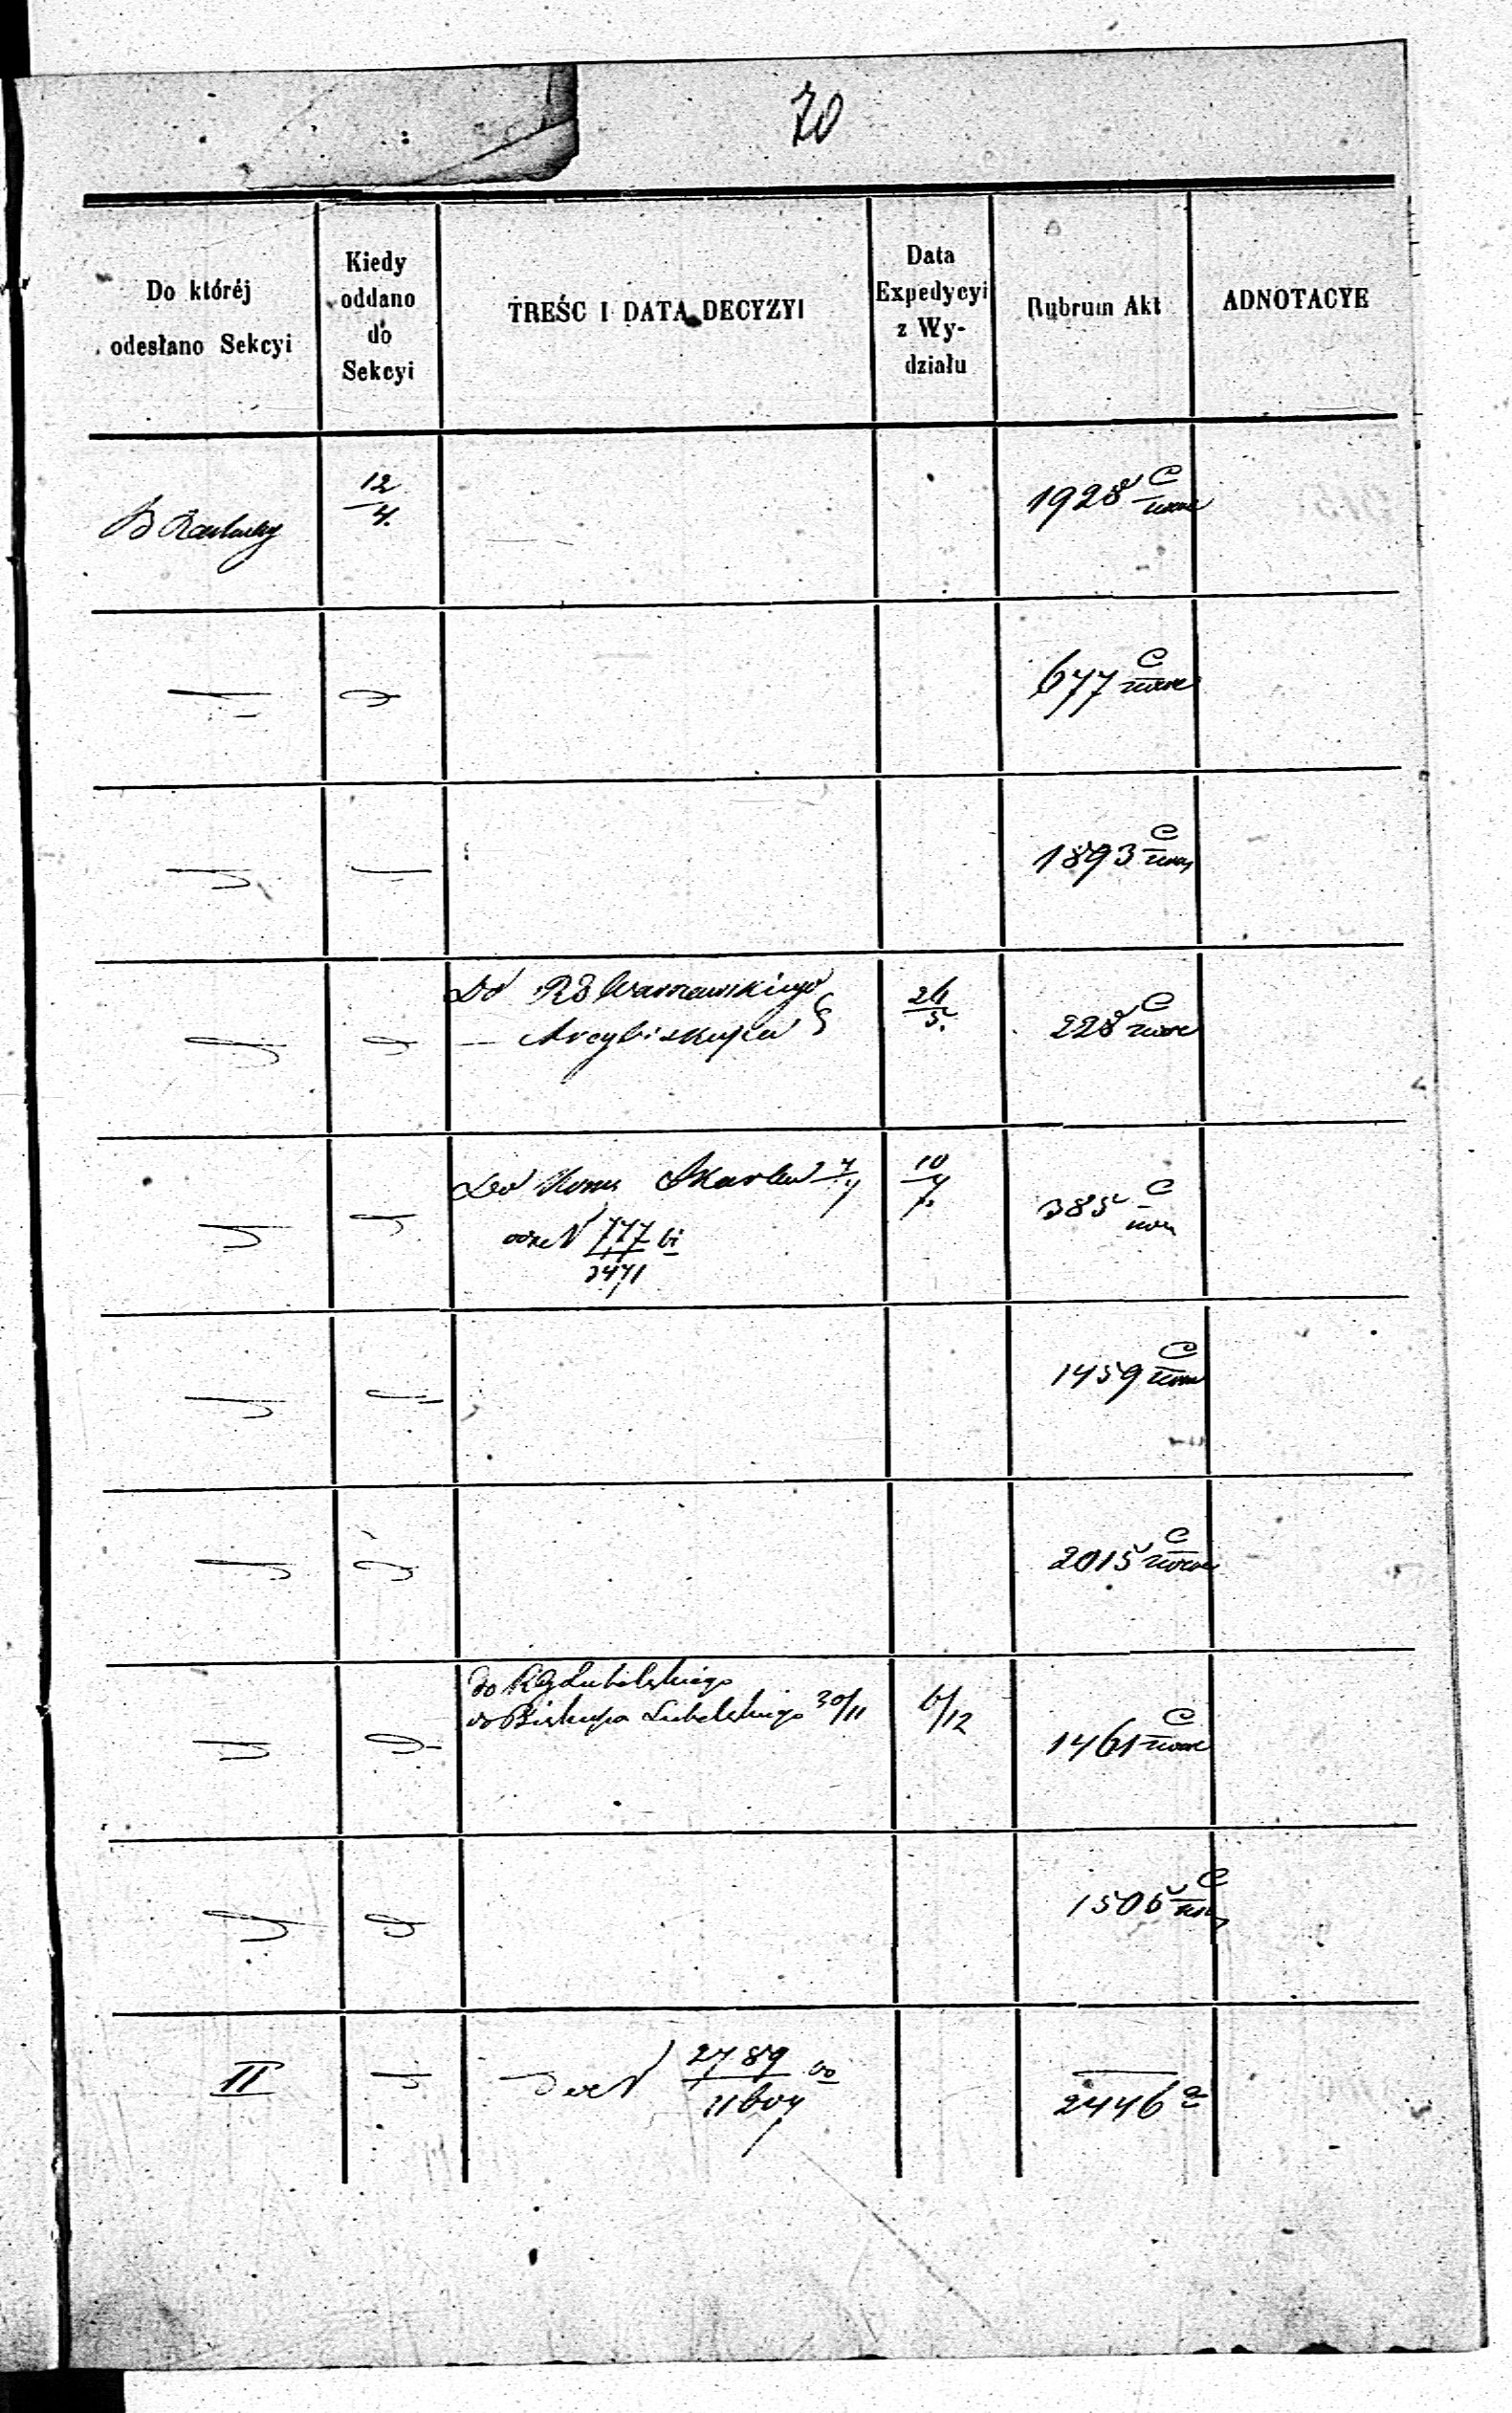 70
Do któréj
odesłano Sekcyi
Kiedy
oddano
do
Sekcyi
TREŚC I DATA DECYZYI
Data
Expedycyi
z Wy-
działu
Rubrum Akt
ADNOTACYE
B
12/4.
1928 C
677 C
1893 C
Do RG Warszawskiego
— Arcybiskupa
26/5.
228 C
Do Kom Skarbu 7/7
10/7.
385 C
N 777/3471
1459 C
2015 C
do RG Lubelskiego
do Biskupa Lubelskiego 30/11
6/12
1461 C
1505 C
II
N 2789/11607
2446